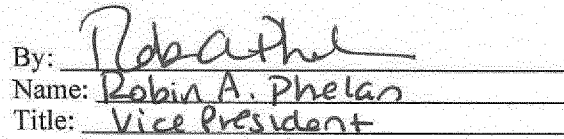 By: Rob A Phel
Name: Robin A. Phelan
Title: Vice President